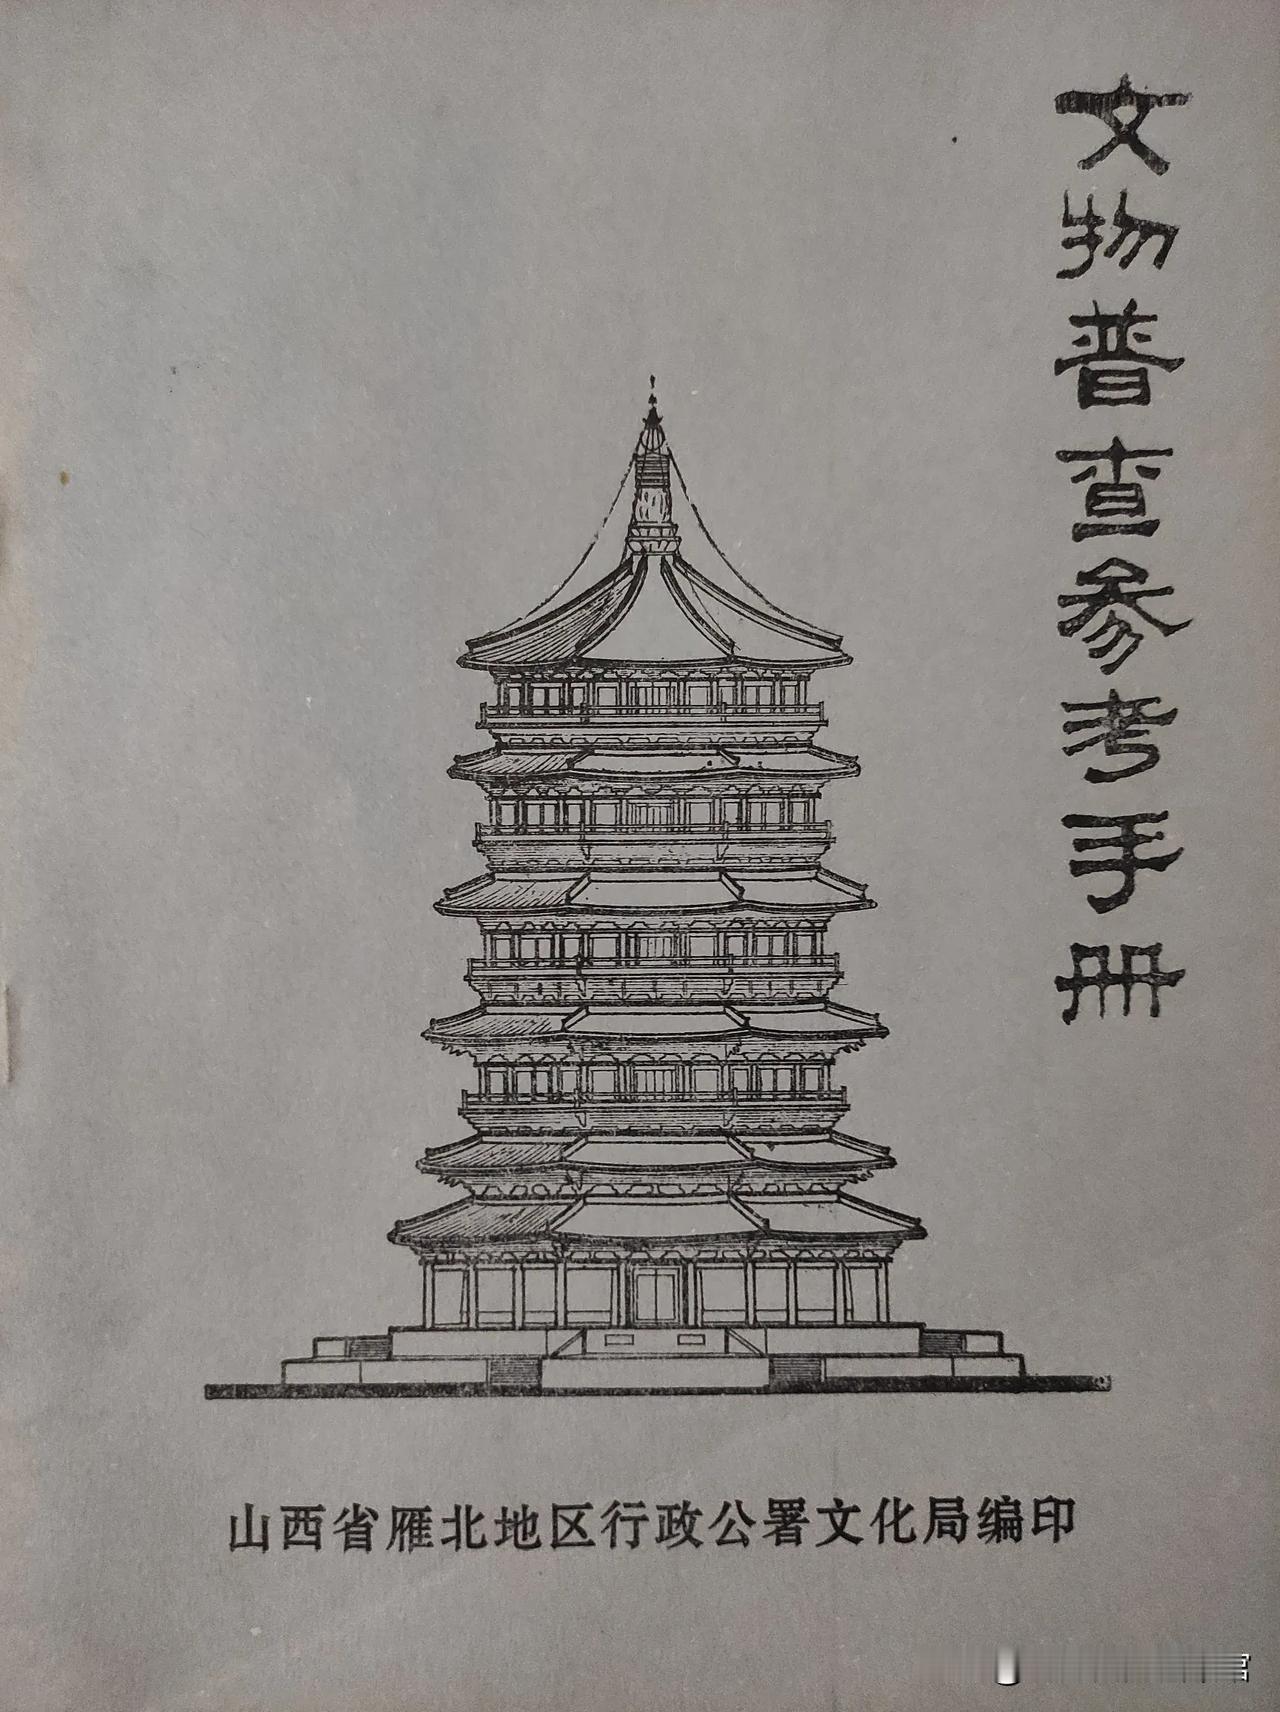 文物普查参考手册
山西省雁北地区行政公署文化局编印